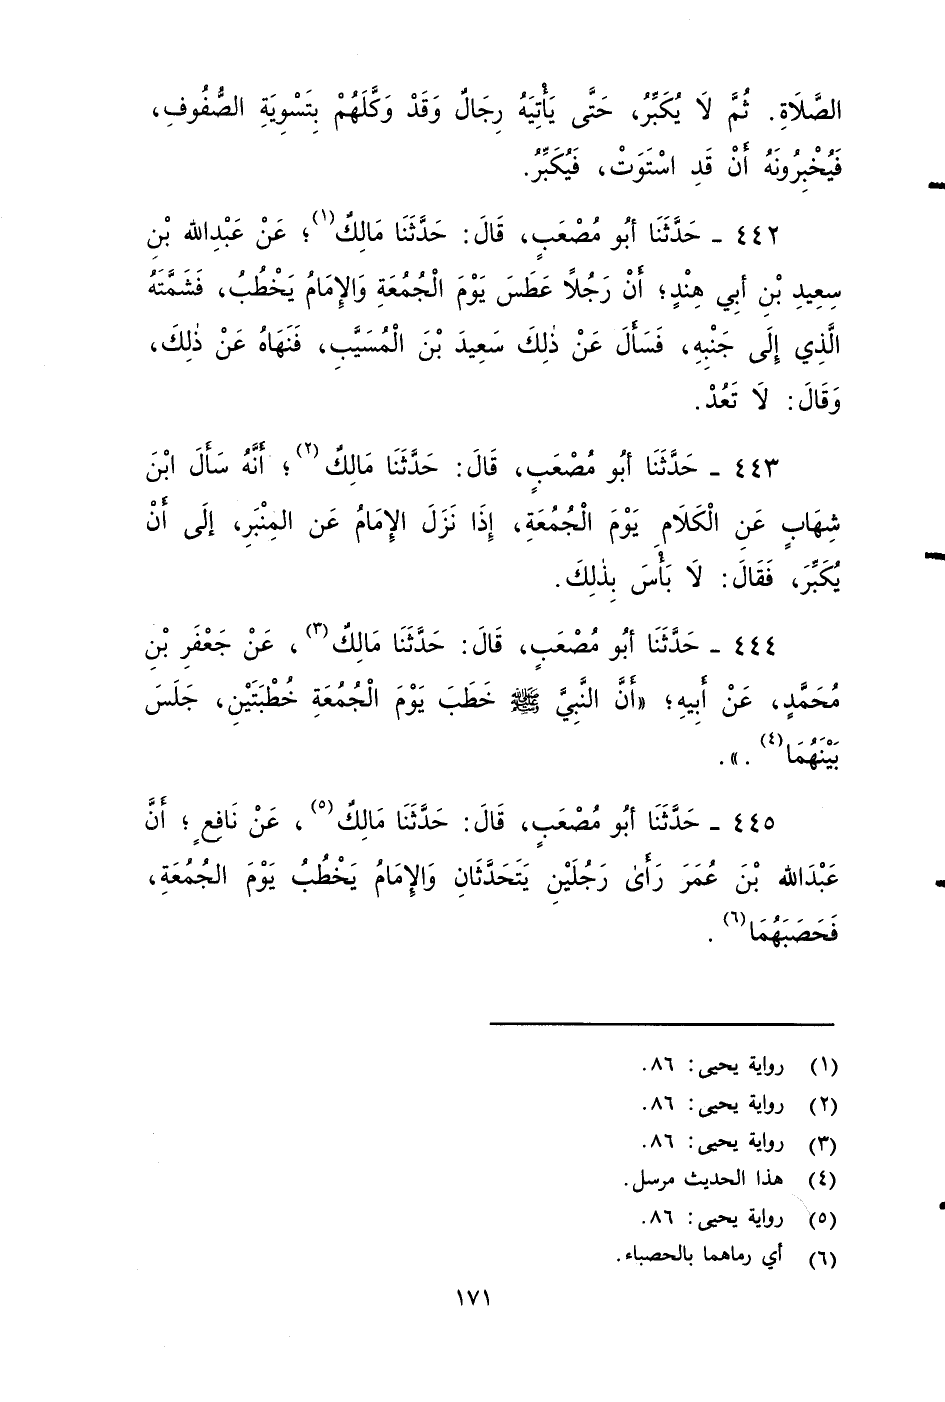 الصَّلَاةِ. ثُمَّ لَا يُكَبِّرُ، حَتَّى يَأْتِيَهُ رِجَالٌ وَقَدْ وَكَّلَهُمْ بِتَسْوِيَةِ الصُّفُوفِ،
فَيُخْبِرُونَهُ أَنْ قَدِ اسْتَوَتْ، فَيُكَبِّرُ.
٤٤٢ - حَدَّثَنَا أبُو مُصْعَبٍ، قَالَ: حَدَّثَنَا مَالِكٌ(١)؛ عَنْ عَبْدِالله بْنِ
سِعِيدِ بْنِ أبي هِنْدٍ؛ أَنْ رَجُلاً عَطَسَ يَوْمَ الْجُمُعَةِ وَالإِمَامُ يَخْطُبُ، فَشَمَّتَهُ
الَّذِي إِلَى جَنْبِهِ، فَسَأَلَ عَنْ ذٰلِكَ سَعِيدَ بْنَ الْمُسَيَّبِ، فَنَهَاهُ عَنْ ذٰلِكَ،
وَقَالَ: لَا تَعُدْ.
٤٤٣ - حَدَّثَنَا أبُو مُصْعَبٍ، قَالَ: حَدَّثَنَا مَالِكٌ(٢)؛ أَنَّهُ سَأَلَ ابْنَ
شِهَابٍ عَنِ الْكَلَامِ يَوْمَ الْجُمُعَةِ، إِذَا نَزَلَ الإِمَامُ عَن المِنْبَرِ، إلَى أَنْ
يُكَبِّرَ، فَقَالَ: لَا بَأْسَ بِذٰلِكَ.
٤٤٤ - حَدَّثَنَا أبُو مُصْعَبٍ، قَالَ: حَدَّثَنَا مَالِكٌ(٣)، عَنْ جَعْفَرِ بْنِ
مُحَمَّدٍ، عَنْ أَبِيهِ؛ «أَنَّ النَّبِيَّ ﷺ خَطَبَ يَوْمَ الْجُمُعَةِ خُطْبَتَيْنِ، جَلَسَ
بَيْنَهُمَا(٤).».
٤٤٥ - حَدَّثَنَا أبُو مُصْعَبٍ، قَالَ: حَدَّثَنَا مَالِكٌ(٥)، عَنْ نَافِعٍ؛ أَنَّ
عَبْدَالله بْنَ عُمَرَ رَأَىٰ رَجُلَيْنِ يَتَحَدَّثَانِ وَالإِمَامُ يَخْطُبُ يَوْمَ الجُمُعَةِ،
فَحَصَبَهُمَا(٦).
(١) رواية يحيى: ٨٦.
(٢) رواية يحيى: ٨٦.
(٣) رواية يحيى: ٨٦.
(٤) هذا الحديث مرسل.
(٥) رواية يحيى: ٨٦.
(٦) أي رماهما بالحصباء.
١٧١